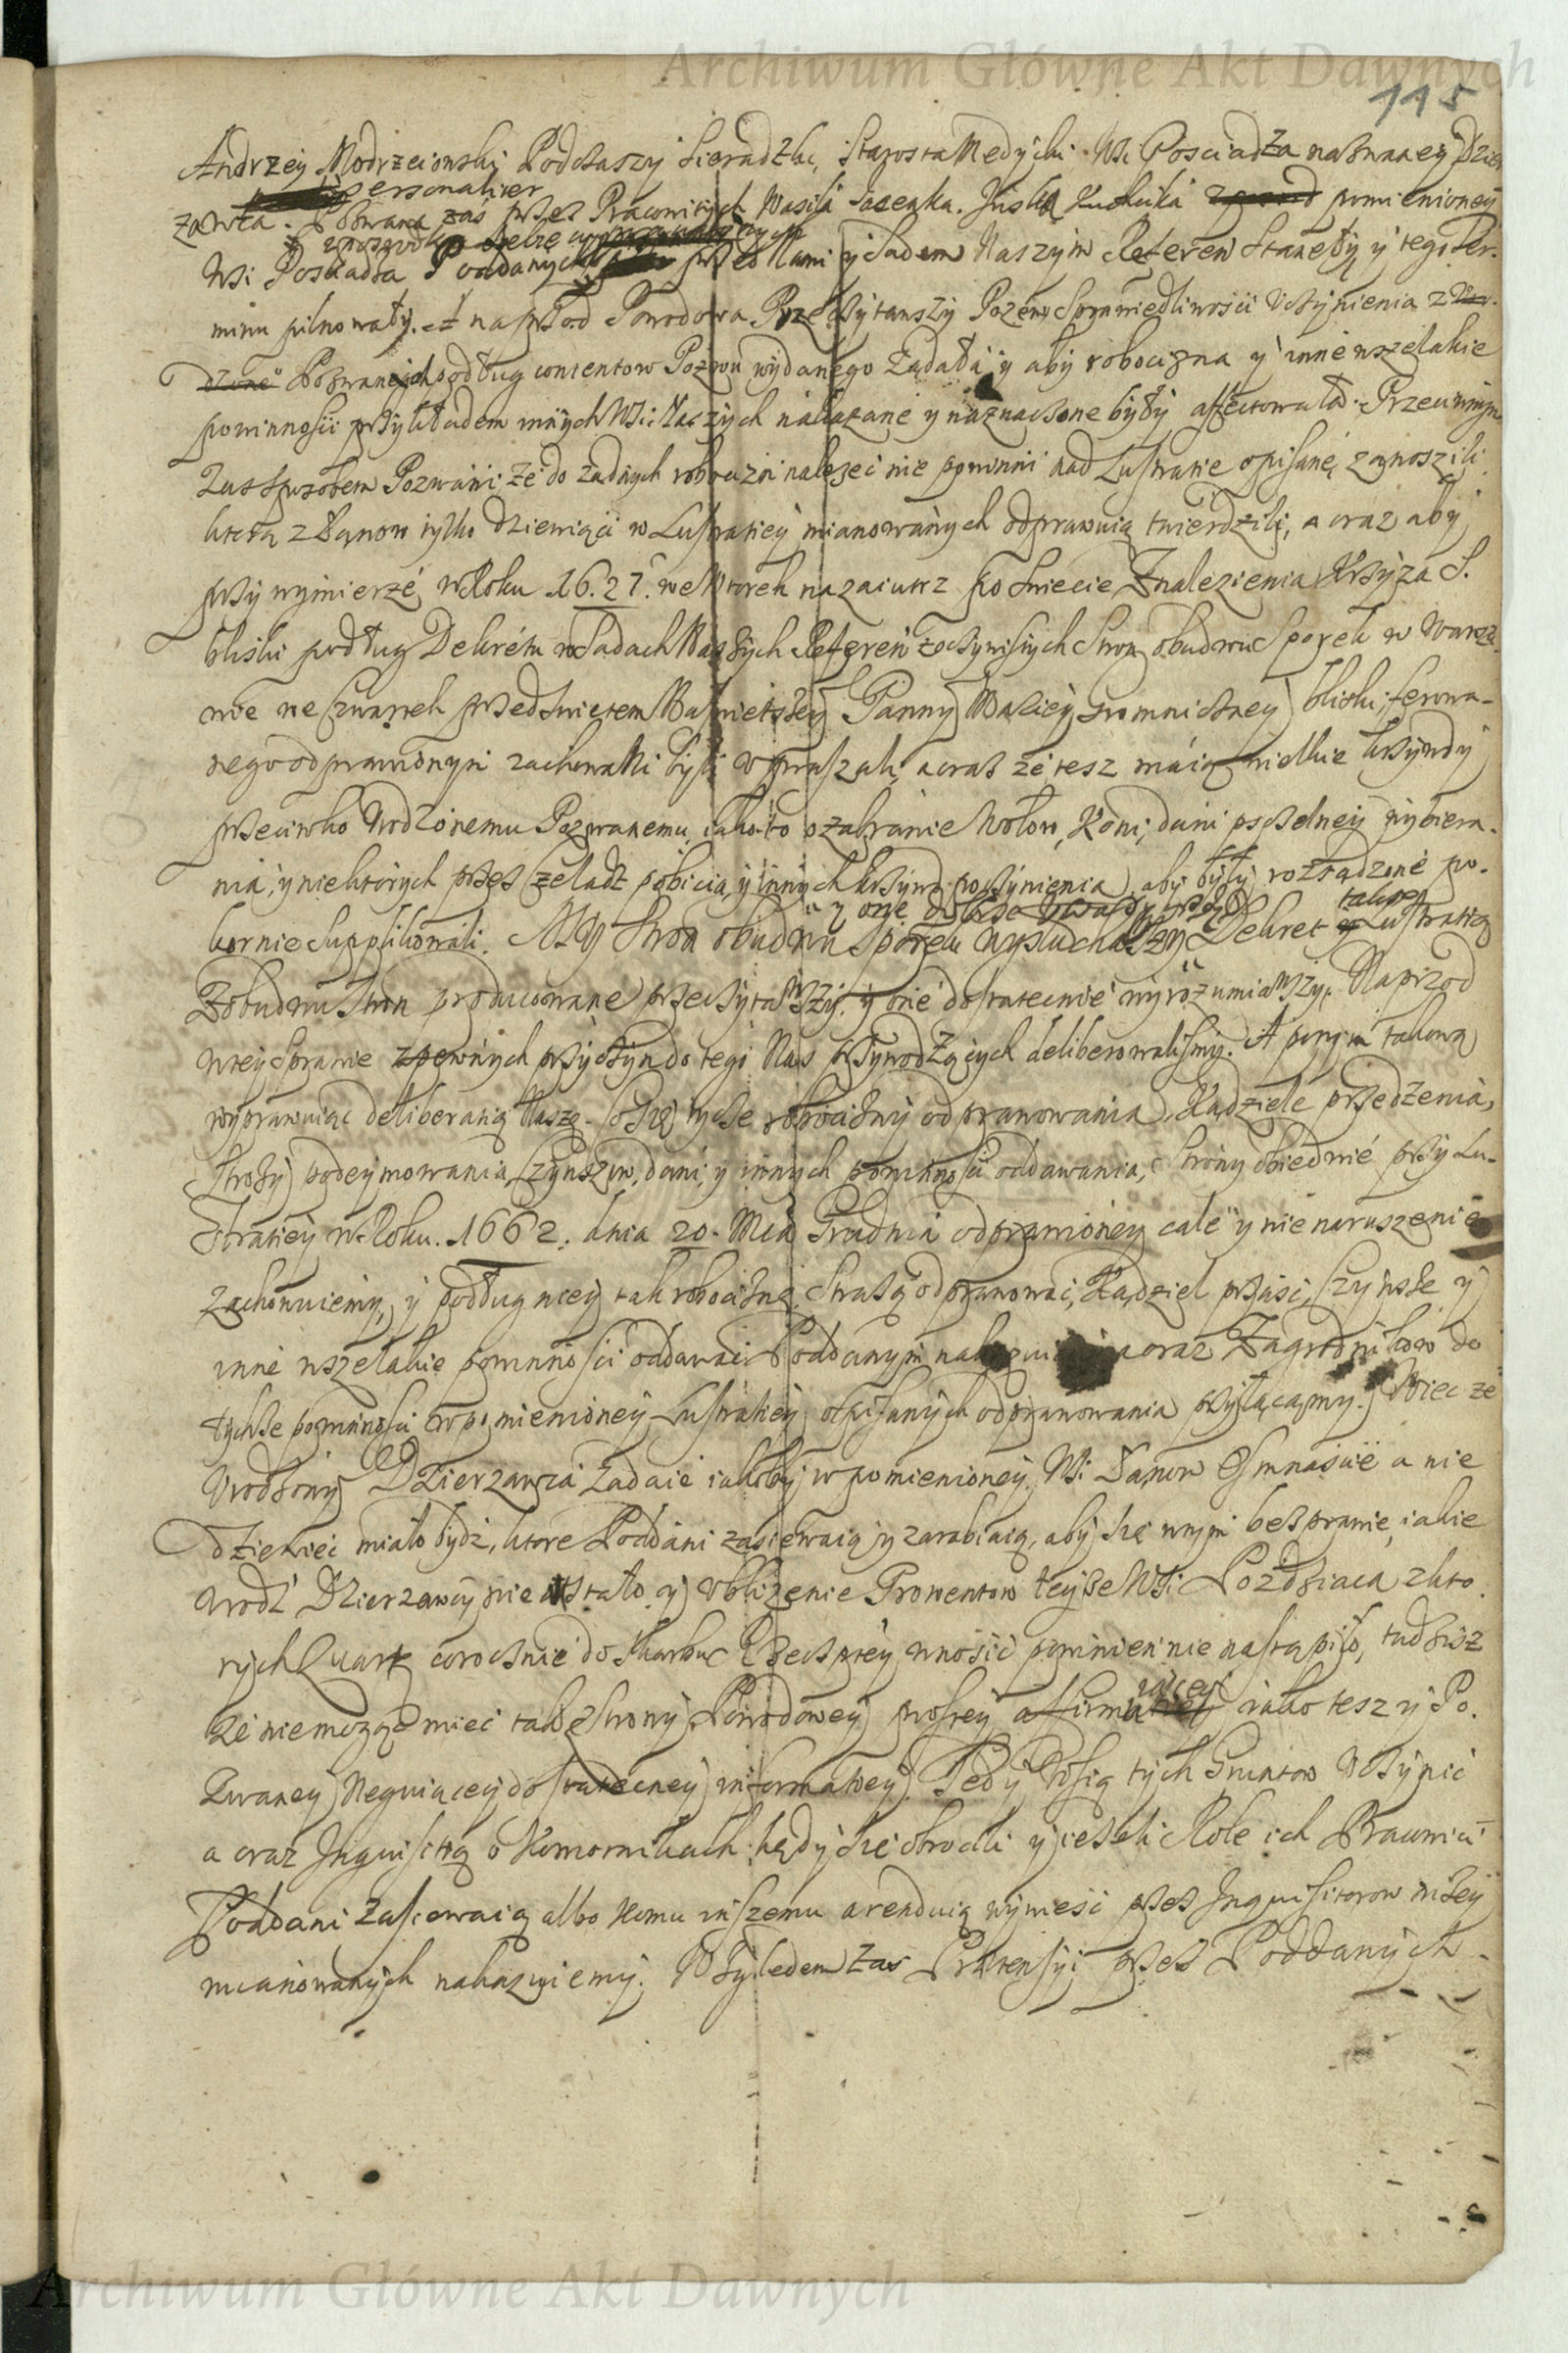 Archiwum Główne Akt Dawnych
115
Andrzey Modrzewski Podczaszy Sieradzki, Starosta Medycki Wsi Posciadza nazwaney Dzier
personaliter
zawca. Pozwana zaś przez Pracowitych Wasila Jacenka. Juska pomienioney
Wsi Posciadza Poddanych przed Nami y Sądem Naszym Referen Stanęły y tego Ter-
minu pilnowały. A naprzod Powodowa Przeczytawszy Pozew Sprawiedliwosci Uczynienia z
Pozwanych podług contentow Pozwu wydanego Żądała, y aby robocizna y inne wszelakie
powinnosci przykładem innych Wsi Naszych nakazane y naznaczone były affectowała. Przeciwnym
zas sposobem Pozwani: że do żadnych robocizn należeć nie powinni nad Lustratie opisane, znosili,
ktorą z Łanow tylko dziewiąci w Lustratiey mianowanych odprawuią twierdzili, a oraz aby
przy wymierze w Roku 1627. we Wtorek nazaiutrz po Swiecie Znalezienia Krzyża S.
blisko podług Dekretu w Sądach Naszych Referen z oczywistych Stron obudwu Sporek w Warsza
wie we Czwartek przed Swiętem Naswiętszey Panny Maryey Gromniczney blisko ferowa-
nego odprawionym zachowani byli upraszali, a oraz że tesz maią wielkie krzywdy
przeciwko Urodzonemu Pozwanemu, iako to o zabranie Wołow, Koni, dani pszczelney wybiera-
nia, y niektorych przez Czeladz pobicia, y innych krzywd poczynienia, aby były rozsądzone po-
y one dobrze uważywszy takze
kornie supplikowali. My Stron obudwu Sporek wysłuchawszy Dekret y Lustratią
Z obudwu Stron producowane przeczytawszy, y one dostatecznie wyrozumiawszy. Naprzod
w tey Sprawie z pewnych przyczyn do tego Nas przywodzących deliberowalismy. A potym takową
wyprawuiąc deliberatią Naszę. Co się tycze robocizny odprawowania, Kądziele przędzenia,
Stroży podeymowania, Czynszow, dani, y innych powinnosci oddawania, Strony obiedwie przy Lu-
stratiey w Roku 1662. dnia 20. Mca Grudnia odprawioney cale y nienaruszenie
Zachowuiemy, y podług niey tak robociznę, Strażą odprawować, Kądziel prząść, Czynsze y
inne wszelakie powinnosci oddawać Poddanym nakazuiemy a oraz Zagrodnikow do
tychże powinnosci w pomienioney Lustratiey opisanych odprawowania przyłączamy. Wiec że
Urodzony Dzierzawca zadaie iakoby w pomienioney Wsi Łanow Osmnascie a nie
dziewieć miało bydź, ktore Poddani zasiewaią y zarabiaią, aby się w tym bezprawie iakie
Urodz Dzierzawcy nie stało, y ubliżenie Prowentow teyże Wsi Pozdziacz z kto-
rych Quartę corocznie do Skarbu Rzeczptey wnosić powinien nie nastąpiło, tudzisz
że niemogąc mieć tak z Strony Powodowey prostey affirmuiącey iako tesz y Po-
zwaney Neguiącey dostateczney informatiey. Tedy Wizią tych Gruntow Uczynić
a oraz Inquisitią o Komornikach kędy się obrocili y ieżeli Role ich Pracowici
Poddani zasiewaią albo komu inszemu arenduią wywieść przez Inquisitorow niżey
mianowanych nakazuiemy. Względem zas Prætensyi przez Poddanych
Archiwum Główne Akt Dawnych